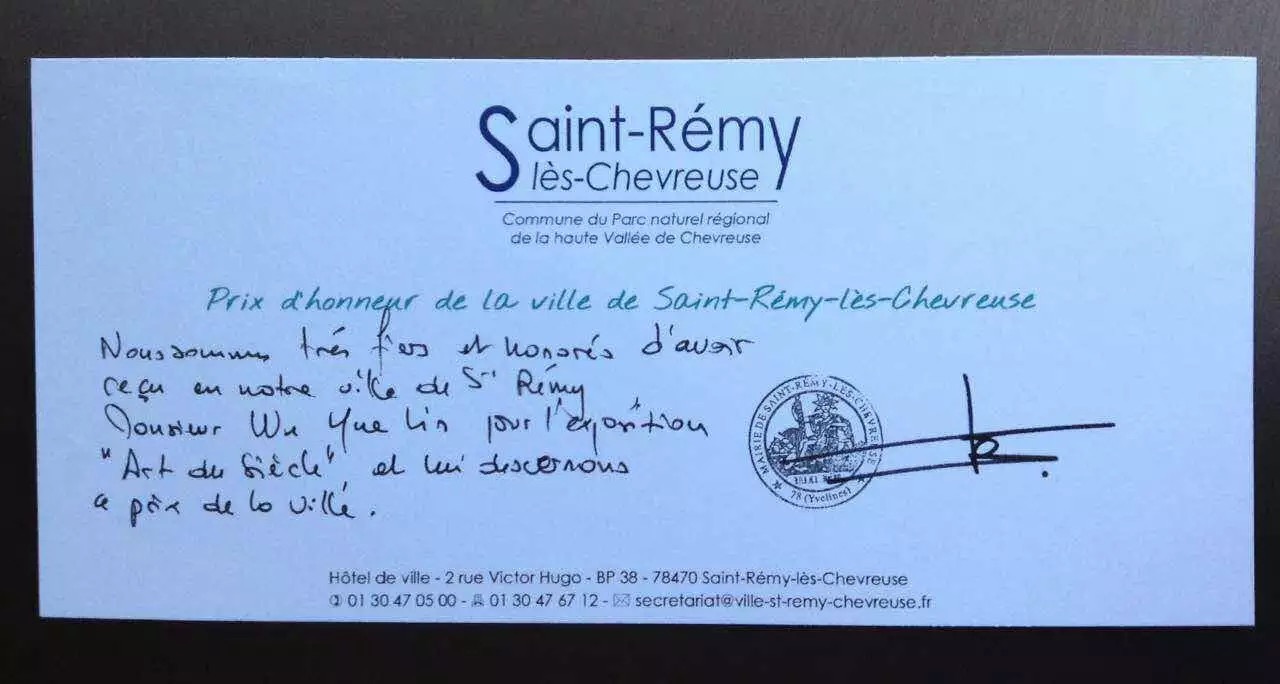 Saint-Rémy
lès-Chevreuse
Commune du Parc naturel régional
de la haute Vallée de Chevreuse
Prix d'honneur de la ville de Saint-Rémy-lès-Chevreuse
Nous sommes très fiers et honorés d'avoir
reçu en notre ville de St Rémy
Monsieur Wu Yue Lin pour l'exposition
"Art du Siècle" et lui descernons
ce prix de la ville.
MAIRIE DE SAINT-RÉMY-LÈS-CHEVREUSE
78 (Yvelines)
Hôtel de ville - 2 rue Victor Hugo - BP 38 - 78470 Saint-Rémy-lès-Chevreuse
01 30 47 05 00 - 01 30 47 67 12 - secretariat@ville-st-remy-chevreuse.fr